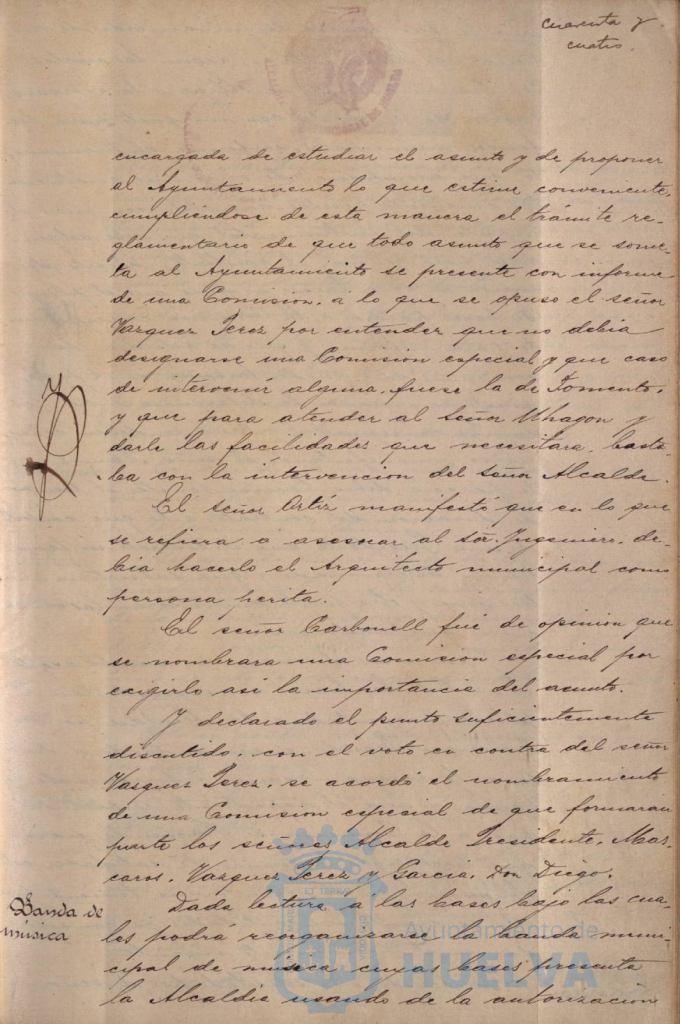 cuarenta y
cuatro.
encargada de estudiar el asunto y de proponer
al Ayuntamiento lo que estime conveniente,
cumpliéndose de esta manera el trámite re-
glamentario de que todo asunto que se some-
ta al Ayuntamiento se presente con informe
de una Comision, a lo que se opuso el señor
Vazquez Perez por entender que no debia
designarse una Comision especial y que caso
de intervenir alguna, fuese la de Fomento,
y que para atender al Señor Uhagon y
darle las facilidades que necesitara, basta-
ba con la intervencion del señor Alcalde.
El señor Ortiz manifestó que en lo que
se refiera a asesorar al Sor. Ingeniero, de-
bia hacerlo el Arquitecto municipal como
persona perita.
El señor Carbonell fué de opinion que
se nombrara una Comision especial por
exigirlo asi la importancia del asunto.
Y declarado el punto suficientemente
discutido, con el voto en contra del señor
Vazquez Perez, se acordó el nombramiento
de una Comision especial de que formaran
parte los señores Alcalde Presidente, Mas-
caros, Vazquez Perez y Garcia, Don Diego.
Banda de
música
Dada lectura a las bases bajo las cua-
les podrá reorganizarse la banda muni-
cipal de música cuyas bases presenta
la Alcaldia usando de la autorización
Ayuntamiento de
HUELVA